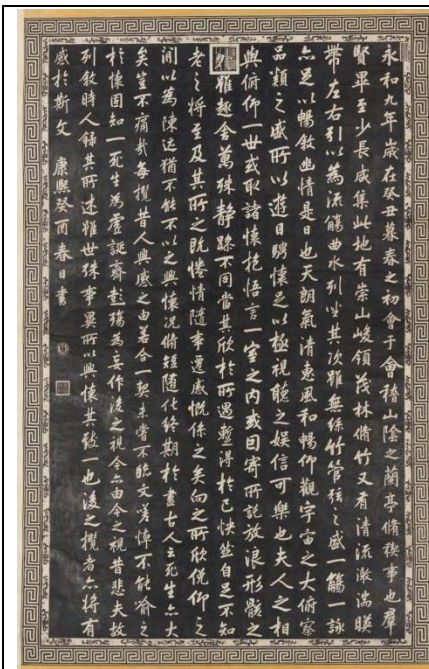 永和九年歲在癸丑暮春之初會于會稽山陰之蘭亭脩禊事也羣
賢畢至少長咸集此地有崇山峻領茂林脩竹又有清流激湍暎
帶左右引以為流觴曲水列坐其次雖無絲竹管弦盛一觴一詠
亦足以暢敘幽情是日也天朗氣清惠風和暢仰觀宇宙之大俯察
品類之盛所以遊目騁懷足以極視聽之娛信可樂也夫人之相
與俯仰一世或取諸懷抱悟言一室之內或因寄所託放浪形骸之
雖趣舍萬殊靜躁不同當其欣於所遇蹔得於己快然自足不知
老之將至及其所之既惓情隨事遷感慨係之矣向之所欣俛仰之
間以為陳迹猶不能不以之興懷況脩短隨化終期於盡古人云死生亦大
矣豈不痛哉每攬昔人興感之由若合一契未嘗不臨文嗟悼不能喻之
於懷固知一死生為虛誕齊彭殤為妄作後之視今亦由今之視昔悲夫故
列敘時人錄其所述雖世殊事異所以興懷其致一也後之攬者亦將有
感於斯文 康熙癸酉春日書